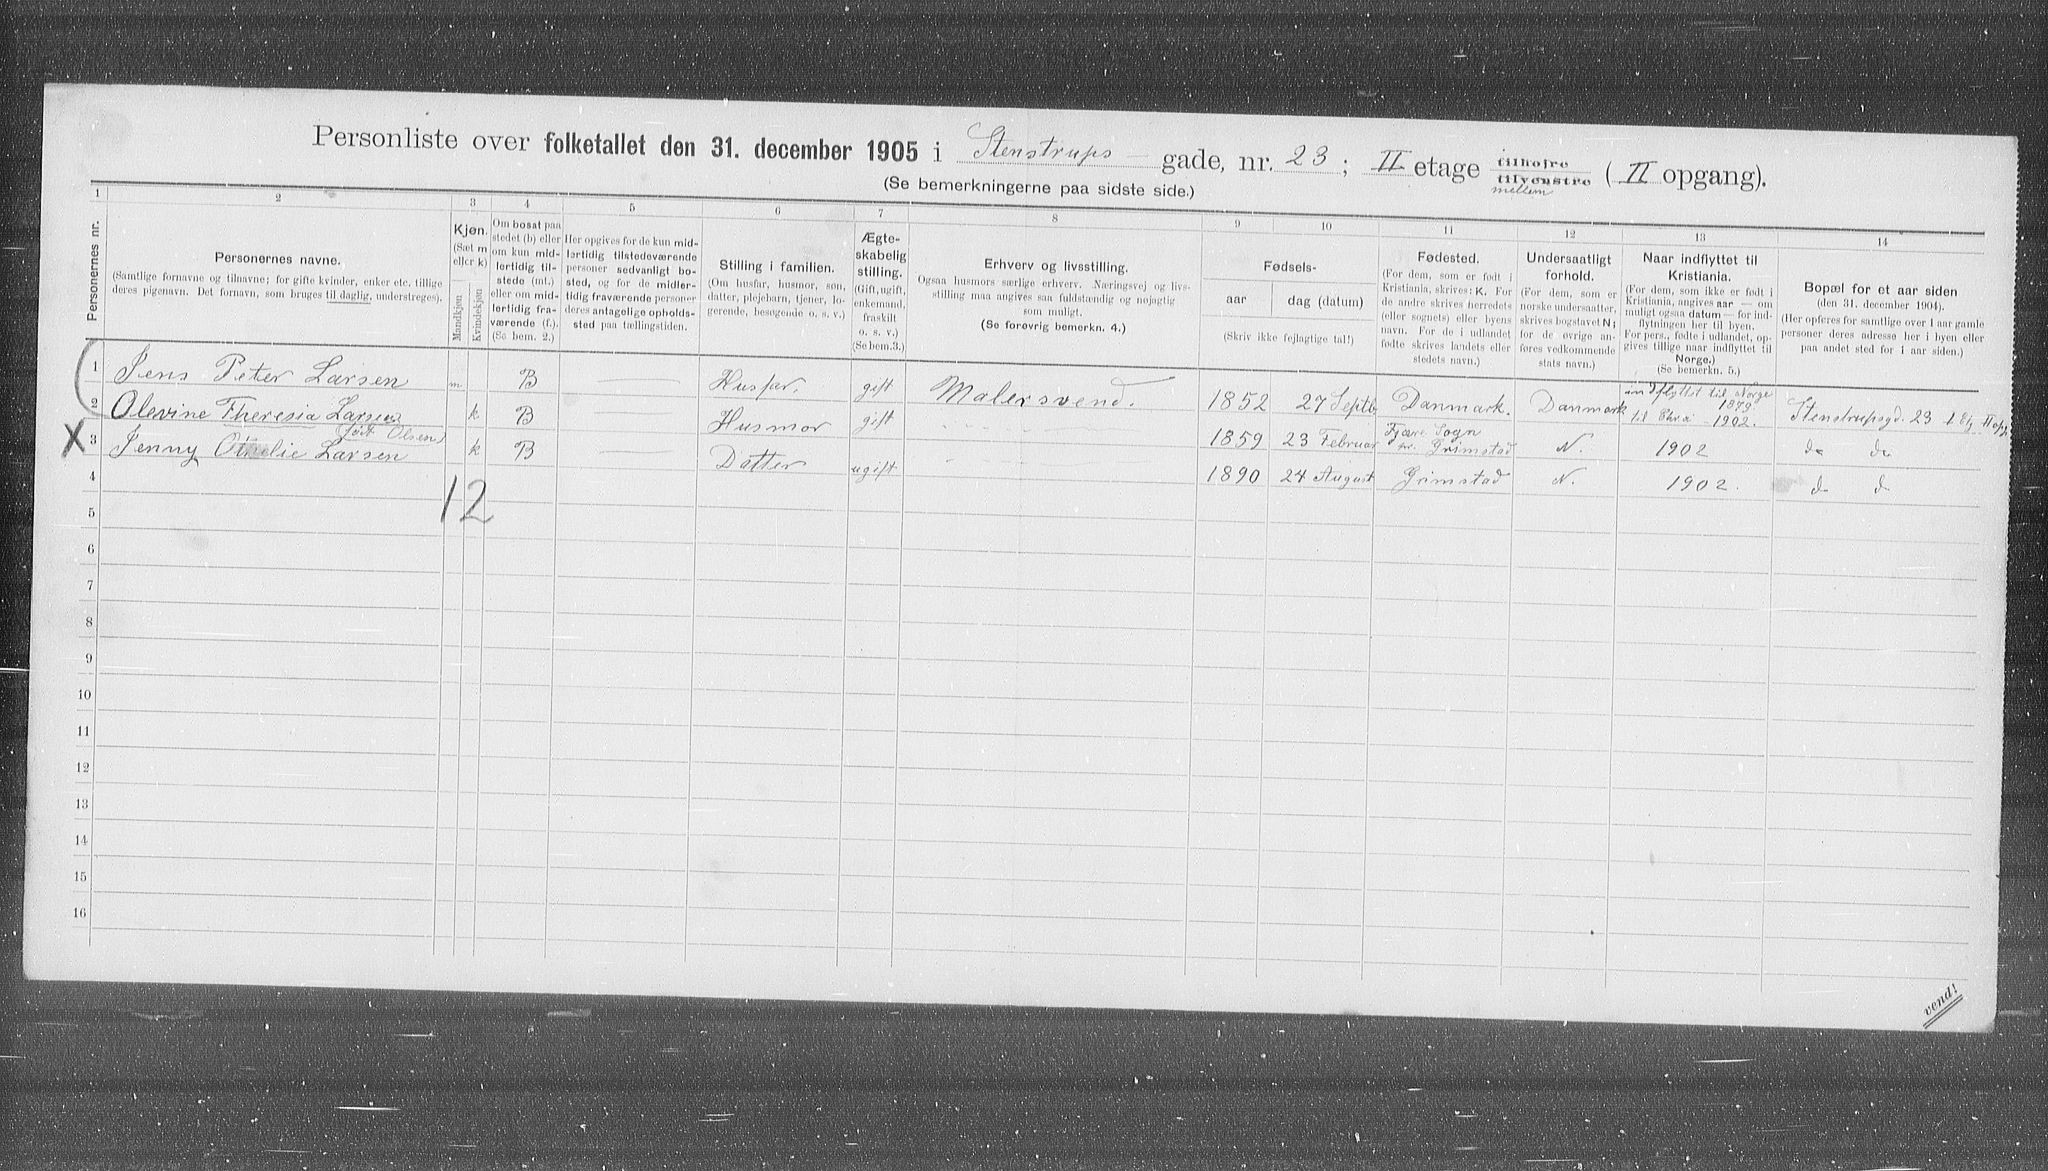 Personliste over folketallet den 31. december 1905 i Stenstrups gade, nr. 23; II etage tilhøjre tilvenstre mellem (II opgang).
(Se bemerkningerne paa sidste side.)
1 2 3 4 5 6 7 8 9 10 11 12 13 14
Personernes nr.
Personernes navne.
(Samtlige fornavne og tilnavne; for gifte kvinder, enker etc. tillige
deres pigenavn. Det fornavn, som bruges til daglig, understreges).
Kjøn.
(Sæt m
eller k)
Mandkjøn
Kvindekjøn
Om bosat paa
stedet (b) eller
om kun mid-
lertidig til-
stede (mt.)
eller om mid-
lertidig fra-
værende (f.).
(Se bem. 2.)
Her opgives for de kun mid-
lertidig tilstedeværende
personer sedvanligt bo-
sted, og for de midler-
tidig fraværende personer
deres antagelige opholds-
sted paa tællingstiden.
Stilling i familien.
(Om husfar, husmor, søn,
datter, plejebarn, tjener, lo-
gerende, besøgende o. s. v.)
Ægte-
skabelig
stilling.
(Gift, ugift,
enkemand,
fraskilt
o. s. v.)
(Se bem. 3.)
Erhverv og livsstilling.
Ogsaa husmors særlige erhverv. Næringsvej og livs-
stilling maa angives saa fuldstændig og nøjagtig
som muligt.
(Se forøvrig bemerkn. 4.)
Fødsels-
aar
dag (datum)
(Skriv ikke fejlagtige tal!)
Fødested.
(For dem, som er født i
Kristiania, skrives: K. For
de andre skrives herredets
(eller sognets) eller byens
navn. For de i udlandet
fødte skrives landets eller
stedets navn.)
Undersaatligt
forhold.
(For dem, som er
norske undersaatter,
skrives bogstavet N;
for de øvrige an-
føres vedkommende
stats navn.)
Naar indflyttet til
Kristiania.
(For dem, som ikke er født i
Kristiania, angives aar — om
muligt ogsaa datum — for ind-
flytningen her til byen.
For pers., fødte i udlandet, op-
gives tillige naar indflyttet til
Norge.)
(Se bemerkn. 5.)
Bopæl for et aar siden
(den 31. december 1904).
(Her opføres for samtlige over 1 aar gamle
personer deres adresse her i byen eller
paa andet sted for 1 aar siden.)
1 Jens Peter Larsen m B Husfar. gift Malersvend. 1852 27 Septb Danmark. Danmark indflyttet til Norge 1879 til Chra 1902. Stenstrupsgd. 23 II op
2 Olevine Theresia Larsen (født Olsen) k B Husmor gift 1859 23 Februar Fjære Sogn pr. Grimstad N. 1902 do do
X 3 Jenny Othelie Larsen k B Datter ugift 1890 24 August Grimstad N. 1902. d d
4
12
5
6
7
8
9
10
11
12
13
14
15
16
vend!